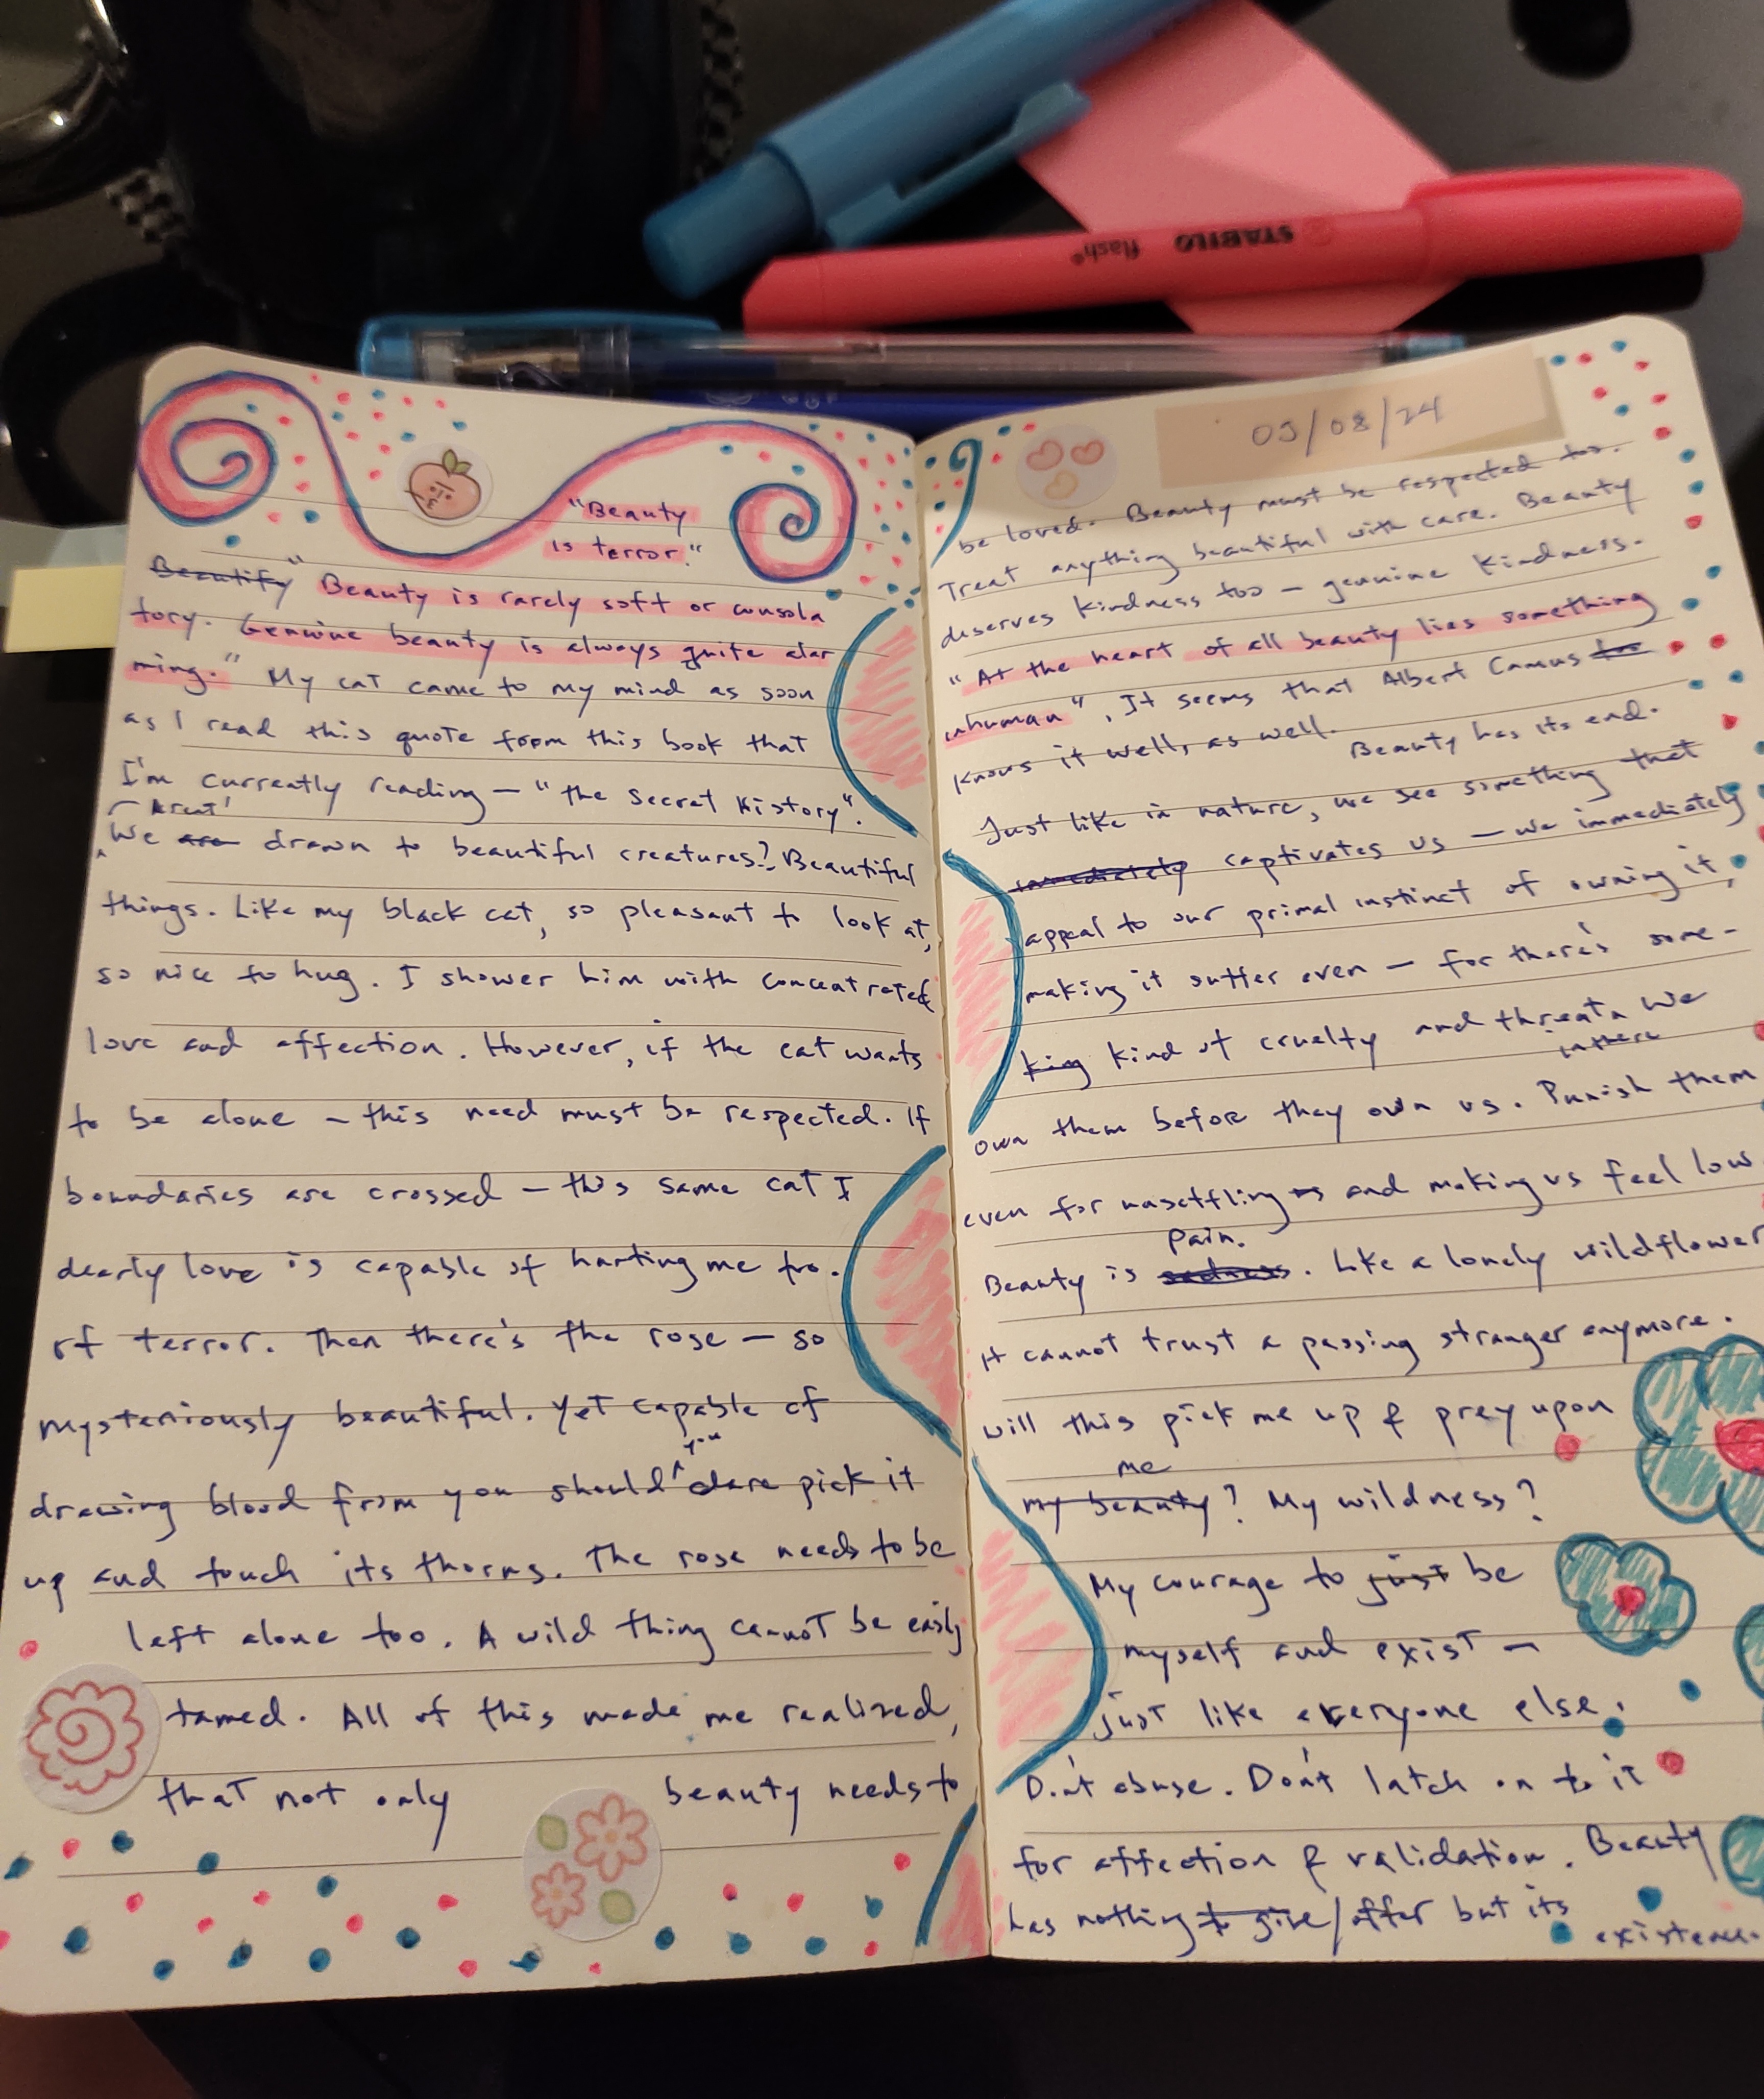 STABILO flash®
"Beauty
is terror."
Beautify "Beauty is rarely soft or consola
tory. Genuine beauty is always quite alar
ming." My cat came to my mind as soon
as I read this quote from this book that
I'm currently reading — "the Secret History".
Aren't
We are drawn to beautiful creatures? Beautiful
things. Like my black cat, so pleasant to look at,
so nice to hug. I shower him with concentrated
love and affection. However, if the cat wants
to be alone – this need must be respected. If
boundaries are crossed – this same cat I
dearly love is capable of hurting me too.
of terror. Then there's the rose — so
mysteriously beautiful. Yet capable of
you
drawing blood from you should dare pick it
up and touch its thorns. The rose needs to be
left alone too. A wild thing cannot be easily
tamed. All of this made me realized,
that not only beauty needs to
03/08/24
be loved. Beauty must be respected too.
Treat anything beautiful with care. Beauty
deserves kindness too — genuine kindness.
"At the heart of all beauty lies something
inhuman", It seems that Albert Camus too
knows it well, as well. Beauty has its end.
Just like in nature, we see something that
immediately captivates us — we immediately
appeal to our primal instinct of owning it,
making it suffer even — for there's some-
king kind of cruelty and threat We
in there
own them before they own us. Punish them
even for unsettling us and making us feel low.
Pain.
Beauty is sadness. Like a lonely wildflower
it cannot trust a passing stranger anymore.
will this pick me up & prey upon
me
my beauty? My wildness?
My courage to just be
myself and exist —
just like everyone else.
Don't abuse. Don't latch on to it
for affection & validation. Beauty
has nothing to give/offer but its
existence.